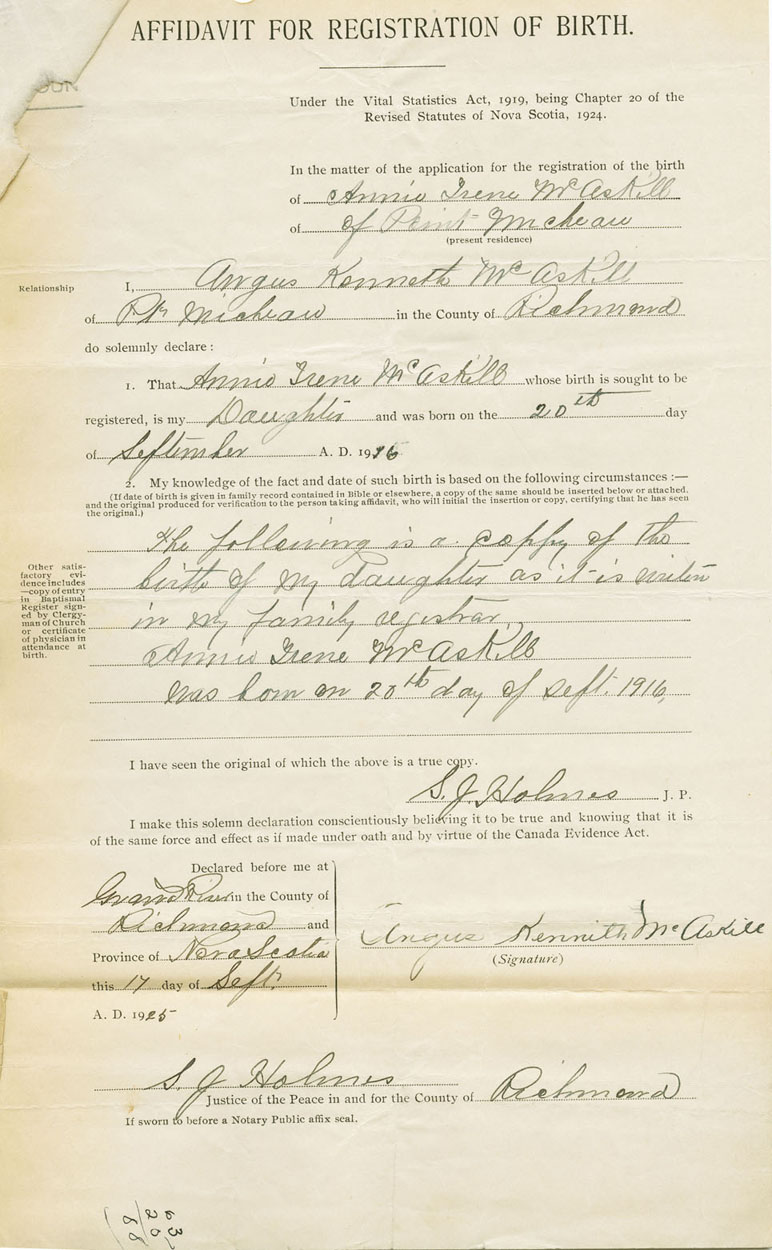 AFFIDAVIT FOR REGISTRATION OF BIRTH.
Under the Vital Statistics Act, 1919, being Chapter 20 of the
Revised Statutes of Nova Scotia, 1924.
In the matter of the application for the registration of the birth
of Annie Irene McAskill
of of Point Micheau
(present residence)
Relationship
I, Angus Kenneth McAskill
of Pt. Micheau in the County of Richmond
do solemnly declare :
1. That Annie Irene McAskill whose birth is sought to be
registered, is my Daughter and was born on the 20th day
of September A. D. 1916
2. My knowledge of the fact and date of such birth is based on the following circumstances :—
(If date of birth is given in family record contained in Bible or elsewhere, a copy of the same should be inserted below or attached,
and the original produced for verification to the person taking affidavit, who will initial the insertion or copy, certifying that he has seen
the original.)
Other satis-
factory evi-
dence includes
—copy of entry
in Baptismal
Register sign-
ed by Clergy-
man of Church
or certificate
of physician in
attendance at
birth.
The following is a coppy of the
birth of my daughter as it is writen
in my family registrar,
Annie Irene McAskill
was born on 20th day of Sept. 1916,
I have seen the original of which the above is a true copy.
S. J. Holmes J. P.
I make this solemn declaration conscientiously believing it to be true and knowing that it is
of the same force and effect as if made under oath and by virtue of the Canada Evidence Act.
Declared before me at
Grand River in the County of
Richmond and
Province of Nova Scotia
this 17 day of Sept.
A. D. 1925
Angus Kennith McAskill
(Signature)
S. J Holmes
Justice of the Peace in and for the County of Richmond
If sworn to before a Notary Public affix seal.